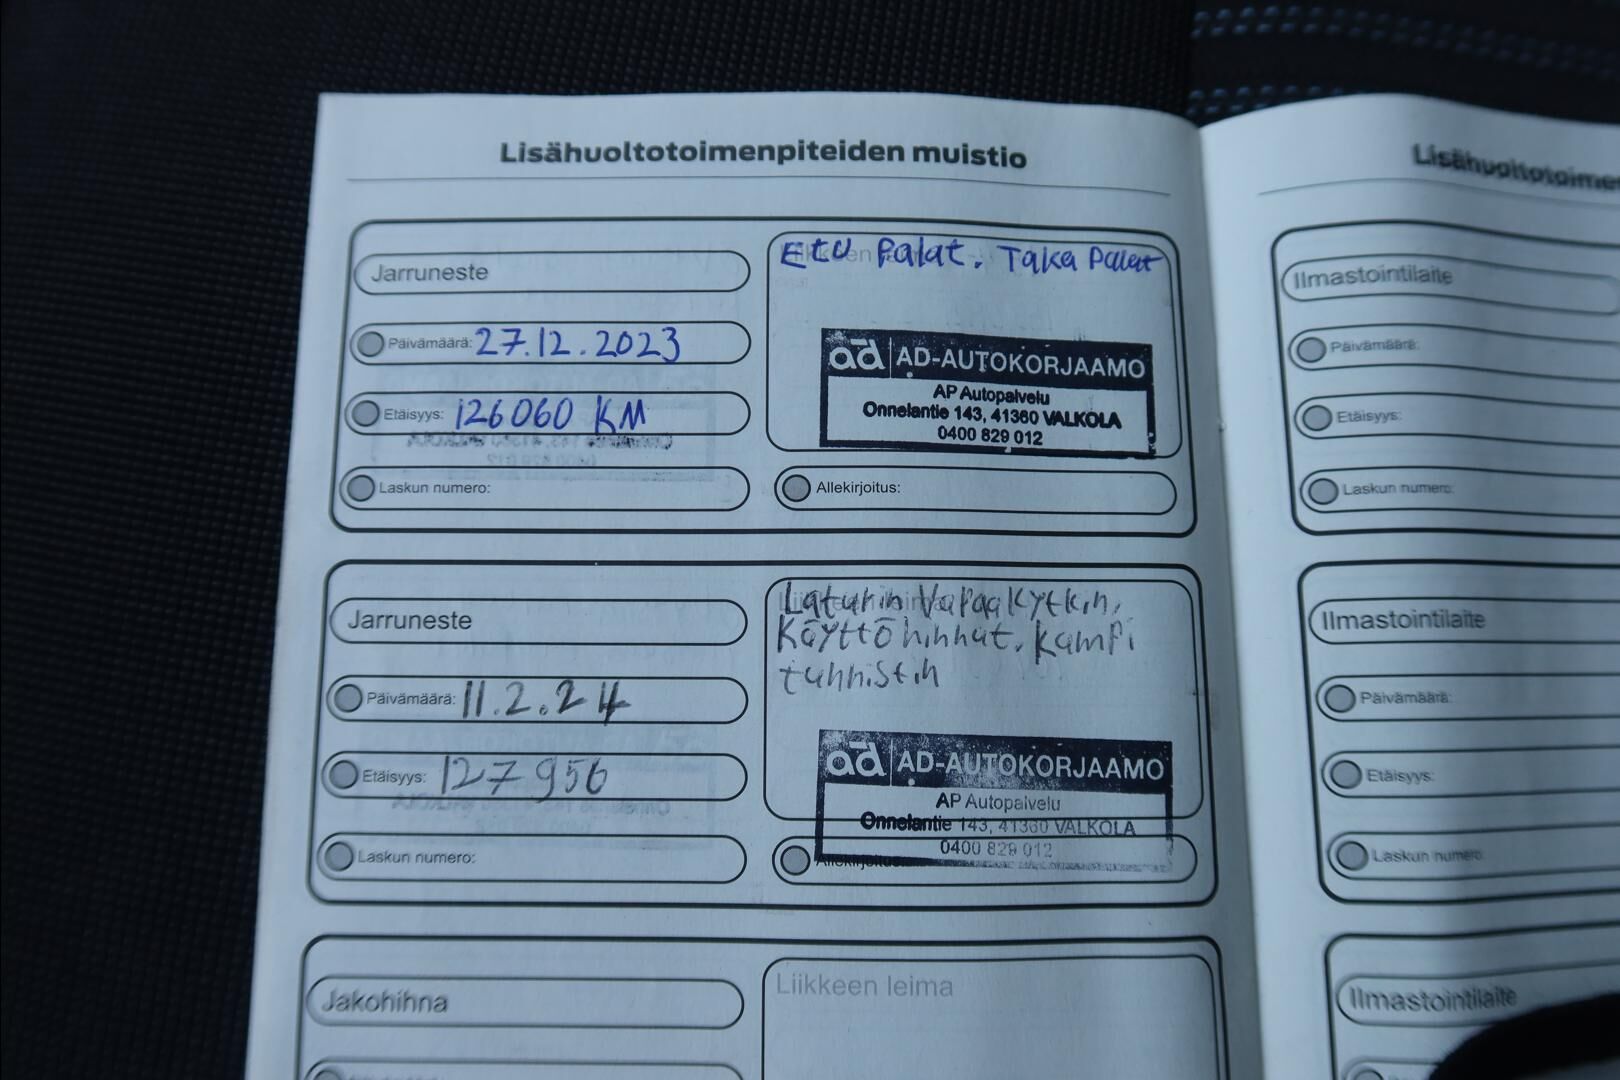 Lisähuoltotoimenpiteiden muistio
Jarruneste
Päivämäärä: 27.12.2023
Etäisyys: 126060 KM
Laskun numero:
Etu Palat. Taka Palat
ad AD-AUTOKORJAAMO
AP Autopalvelu
Onnelantie 143, 41360 VALKOLA
0400 829 012
Allekirjoitus:
Jarruneste
Päivämäärä: 11.2.24
Etäisyys: 127956
Laskun numero:
Laturin Vapaakytkin,
Käyttöhihnat, kampi
tunnistin
ad AD-AUTOKORJAAMO
AP Autopalvelu
Onnelantie 143, 41360 VALKOLA
0400 829 012
Allekirjoitus:
Jakohihna
Liikkeen leima
Lisähuoltotoime
Ilmastointilaite
Päivämäärä:
Etäisyys:
Laskun numero:
Ilmastointilaite
Päivämäärä:
Etäisyys:
Laskun numero
Ilmastointilaite